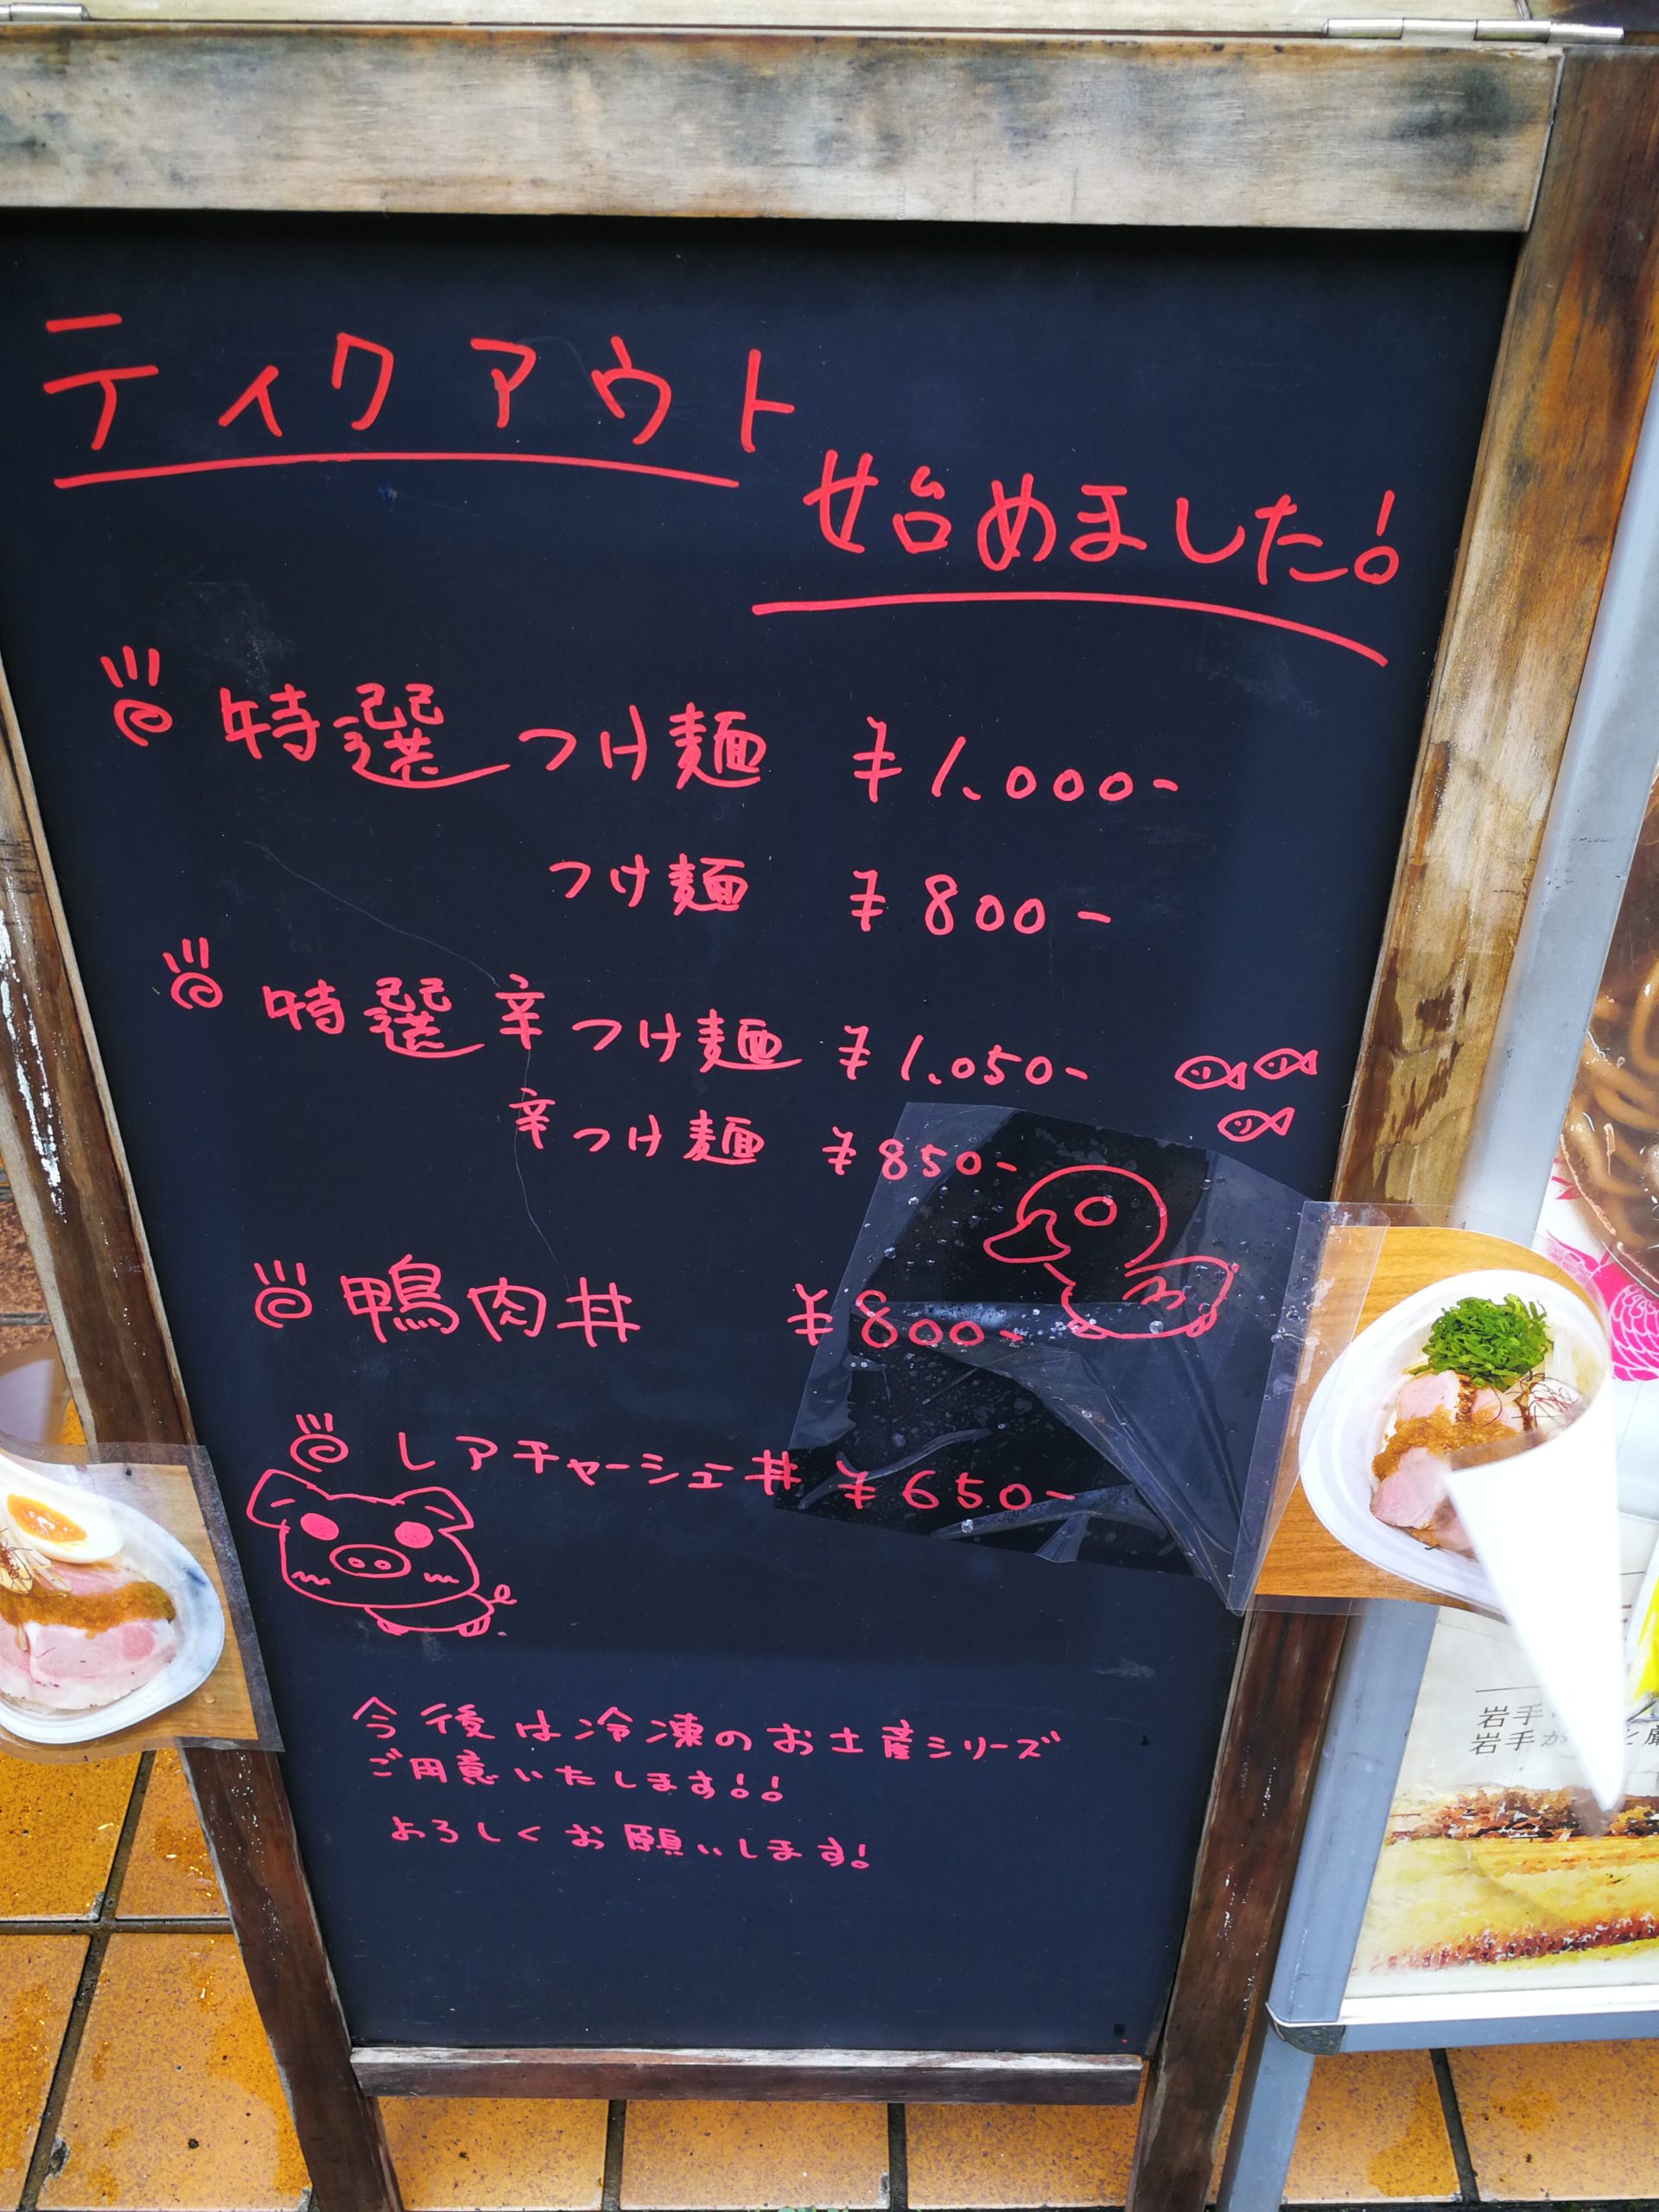 ティクアウト
始めました!
特選つけ麺 ¥1.000-
つけ麺 ¥800-
特選辛つけ麺 ¥1.050-
辛つけ麺 ¥850-
鴨肉丼 ¥800-
レアチャーシュー丼 ¥650-
今後は冷凍のお土産シリーズ
ご用意いたします!!
よろしくお願いします!
岩手
岩手が